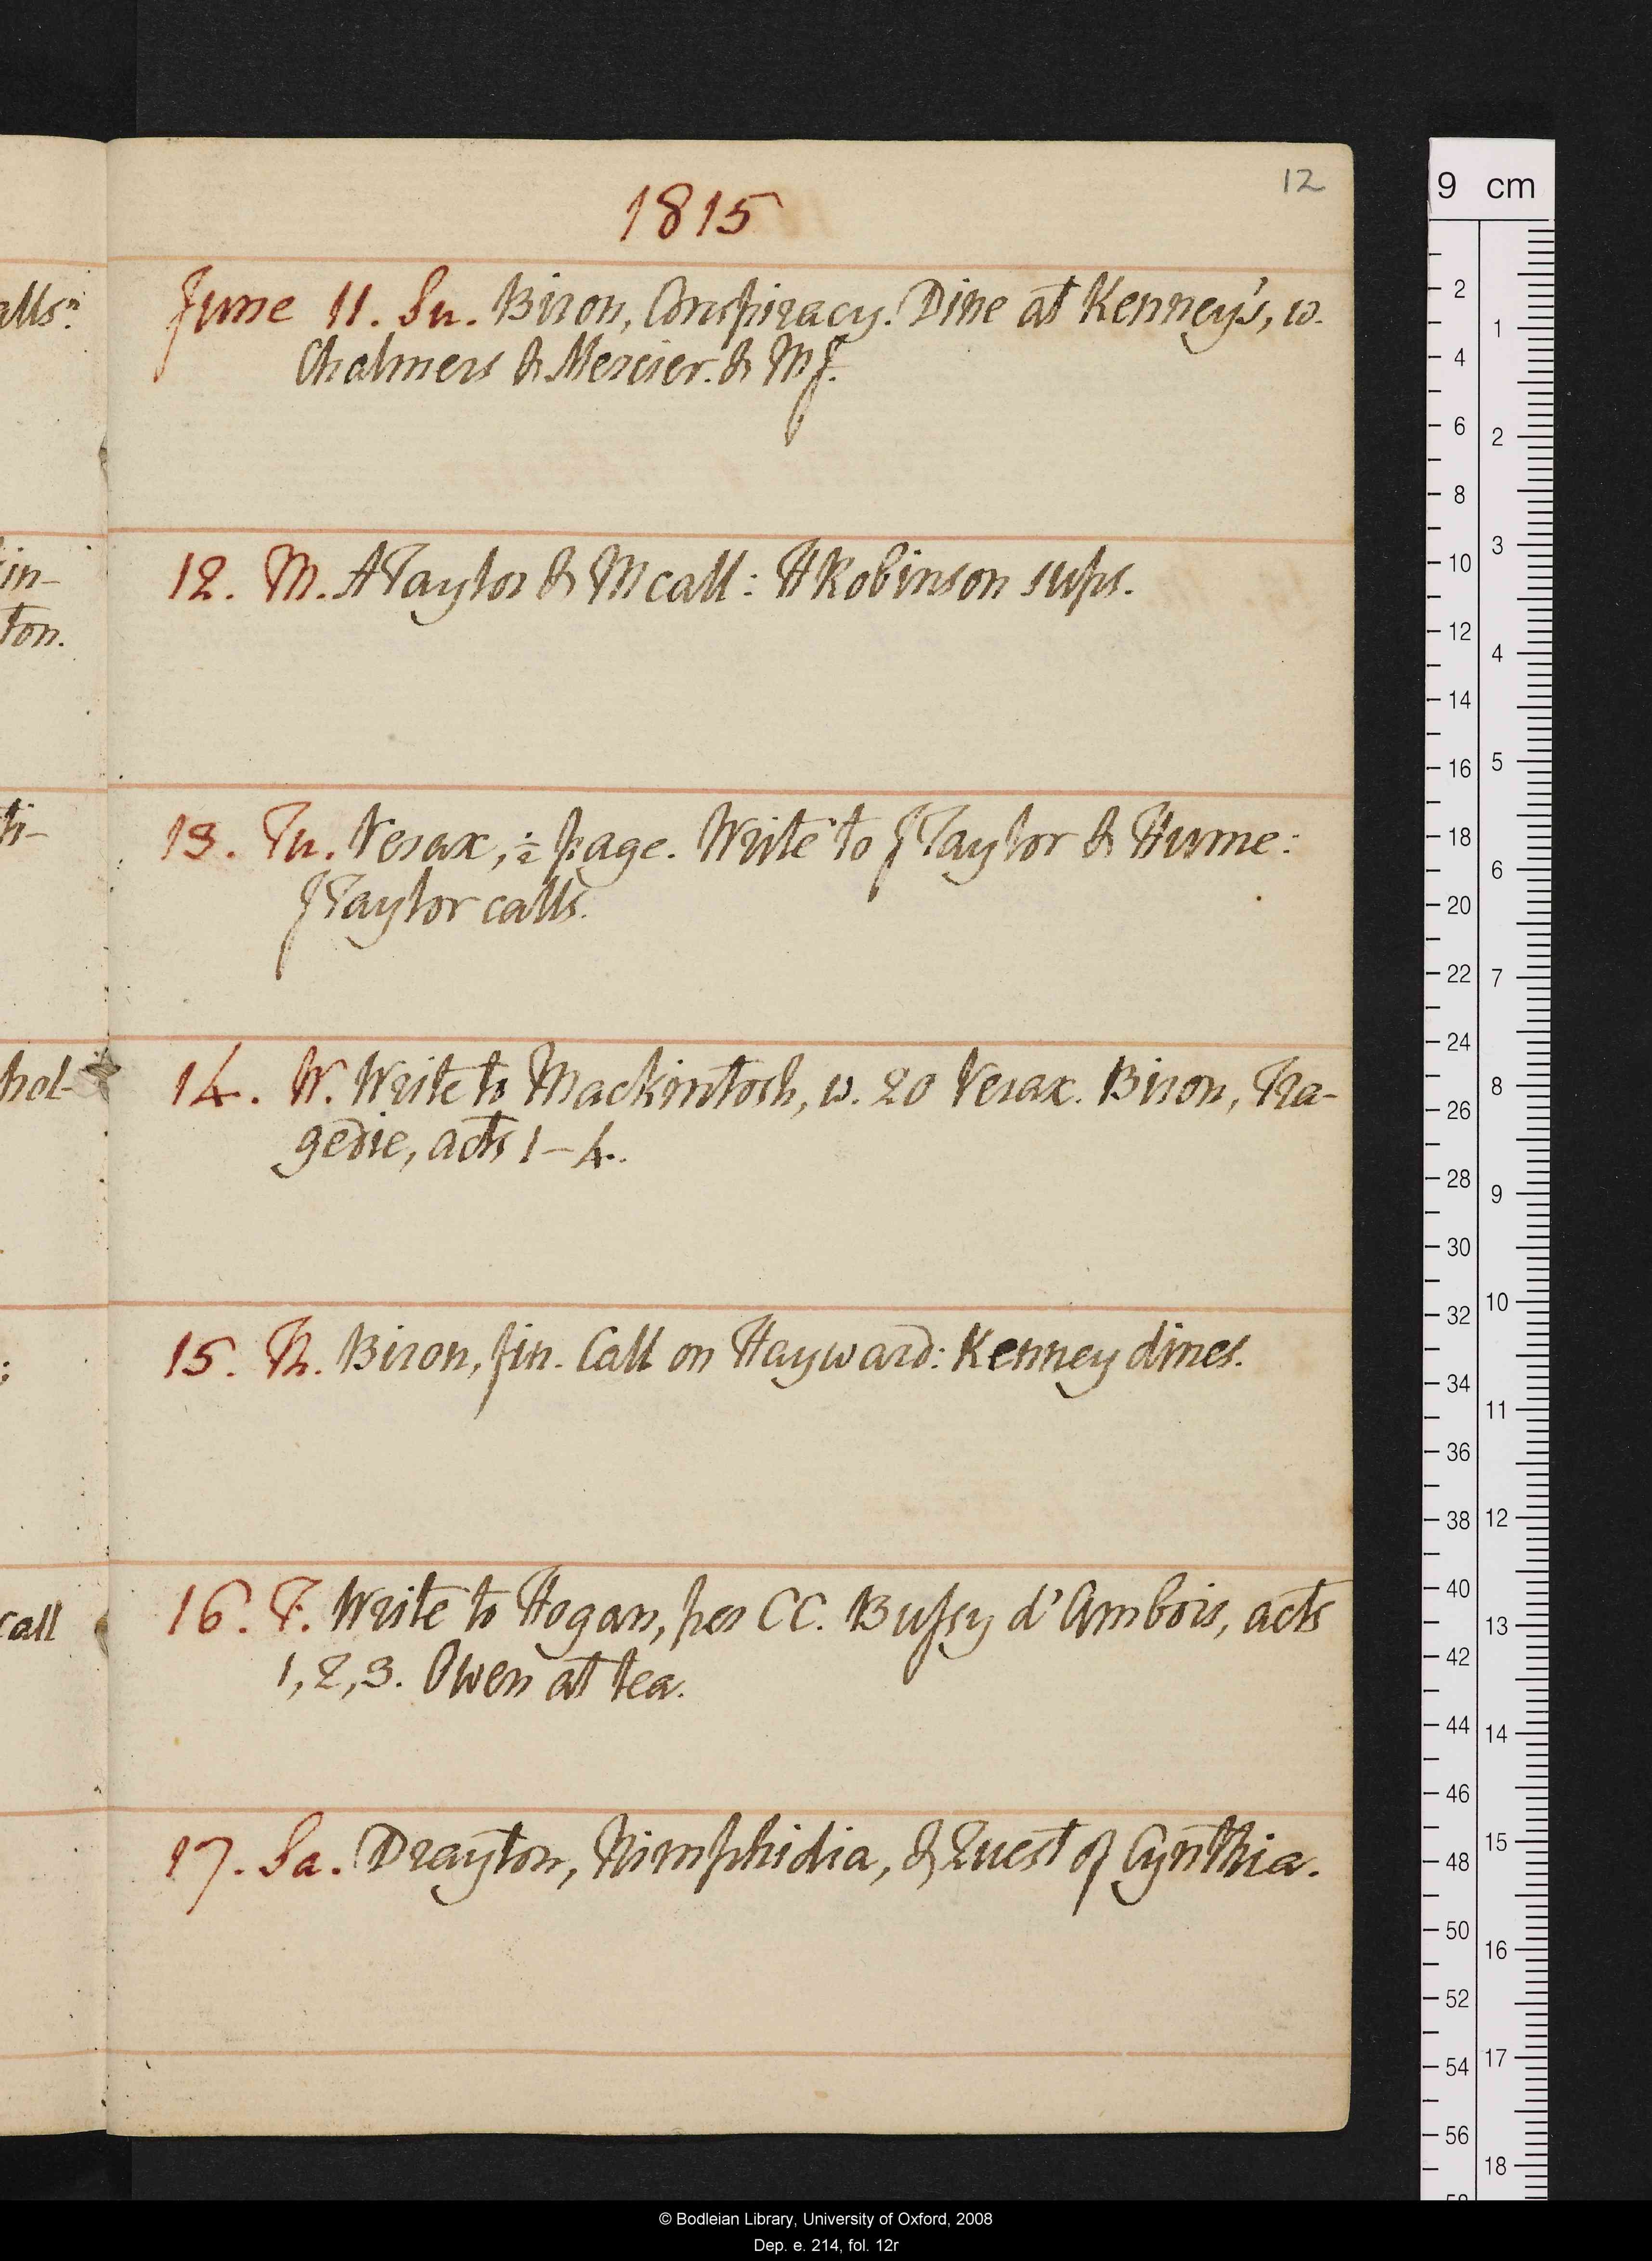 12
1815
June 11. Su. Biron, Conspiracy. Dine at Kenney's, w.
Chalmers & Mercier. & MJ.
12. M. ATaylor & M call: HRobinson sups.
13. Tu. Verax, ½ page. Write to JTaylor & Hume:
JTaylor calls.
14. W. Write to Mackintosh, w. 20 Verax. Biron, Tra-
gedie, acts 1–4.
15. Th. Biron, fin. Call on Hayward: Kenney dines.
16. F. Write to Hogan, per CC. Bussy d'Ambois, acts
1, 2, 3. Owen at tea.
17. Sa. Drayton, Nimphidia, & Quest of Cynthia.
alls:
in-
ton.
ti-
hol-
;
call
9 cm
2
4
6
8
10
12
14
16
18
20
22
24
26
28
30
32
34
36
38
40
42
44
46
48
50
52
54
56
1
2
3
4
5
6
7
8
9
10
11
12
13
14
15
16
17
18
© Bodleian Library, University of Oxford, 2008
Dep. e. 214, fol. 12r